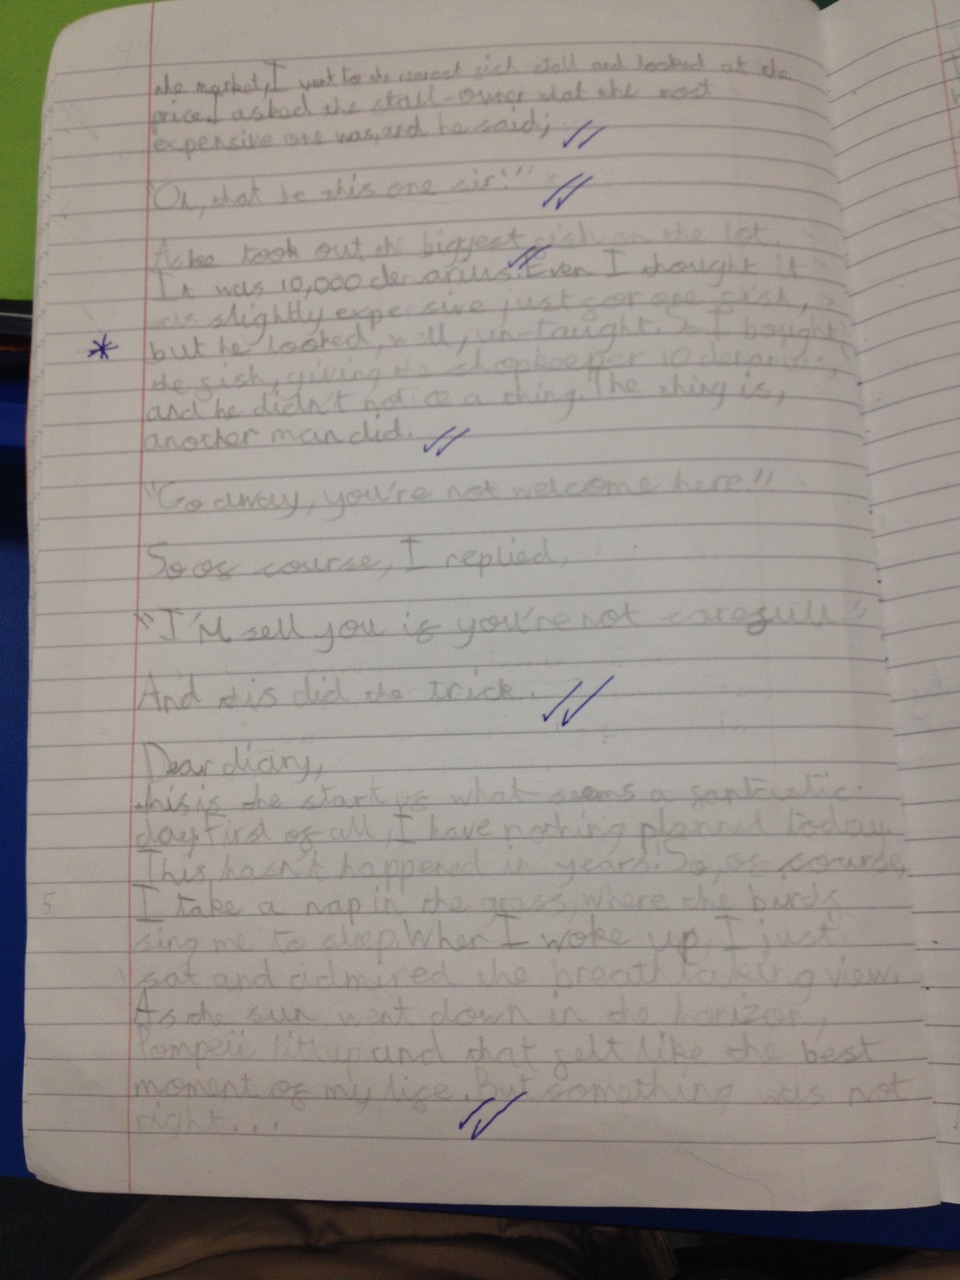 the market, I went to the nearest fish stall and looked at the
price. I asked the stall-owner what the most
expensive one was, and he said;
"Oh, that be this one sir!"
As he took out the biggest fish in the lot.
It was 10,000 denarius. Even I thought it
was slightly expensive just for one fish,
but he looked, well, un-taught. So I bought
the fish, giving the shopkeeper 10 denarius,
and he didn't notice a thing. The thing is,
another man did.
"Go away, you're not welcome here!"
So of course, I replied,
"I'll sell you if you're not carefull"
And this did the trick.
Dear diary,
this is the start of what seems a fantastic
day first of all, I have nothing planned today.
This hasn't happened in years. So, of course,
5 I take a nap in the grass, where the birds
sing me to sleep. When I woke up, I just
sat and admired the breathtaking view.
As the sun went down in the horizon,
Pompeii lit up and that felt like the best
moment of my life. But something was not
right...